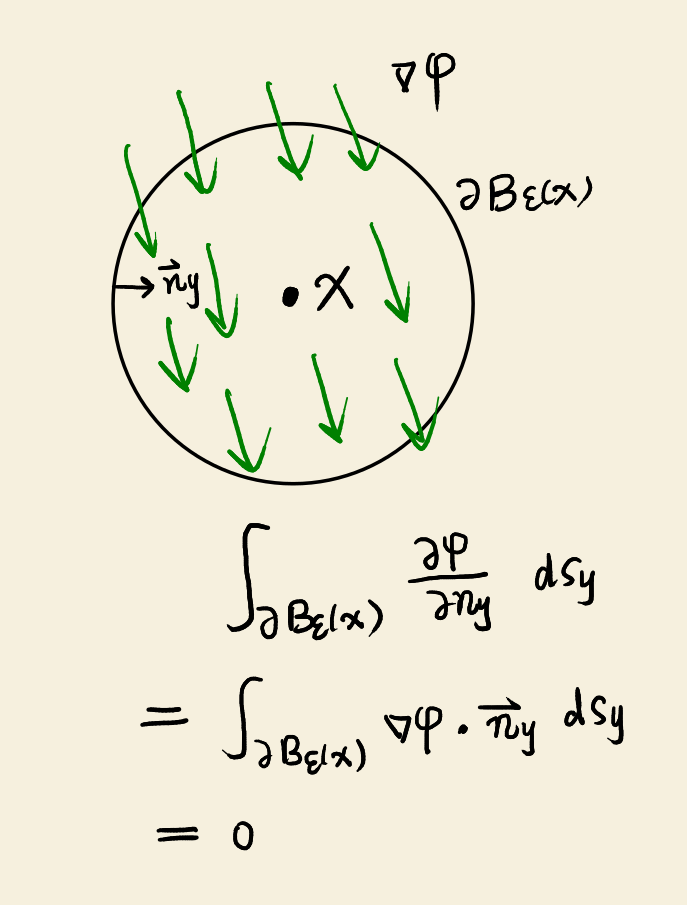 ∇φ
∂Bε(x)
n⃗y
x
∫∂Bε(x) ∂φ/∂ny dSy
= ∫∂Bε(x) ∇φ · n⃗y dSy
= 0